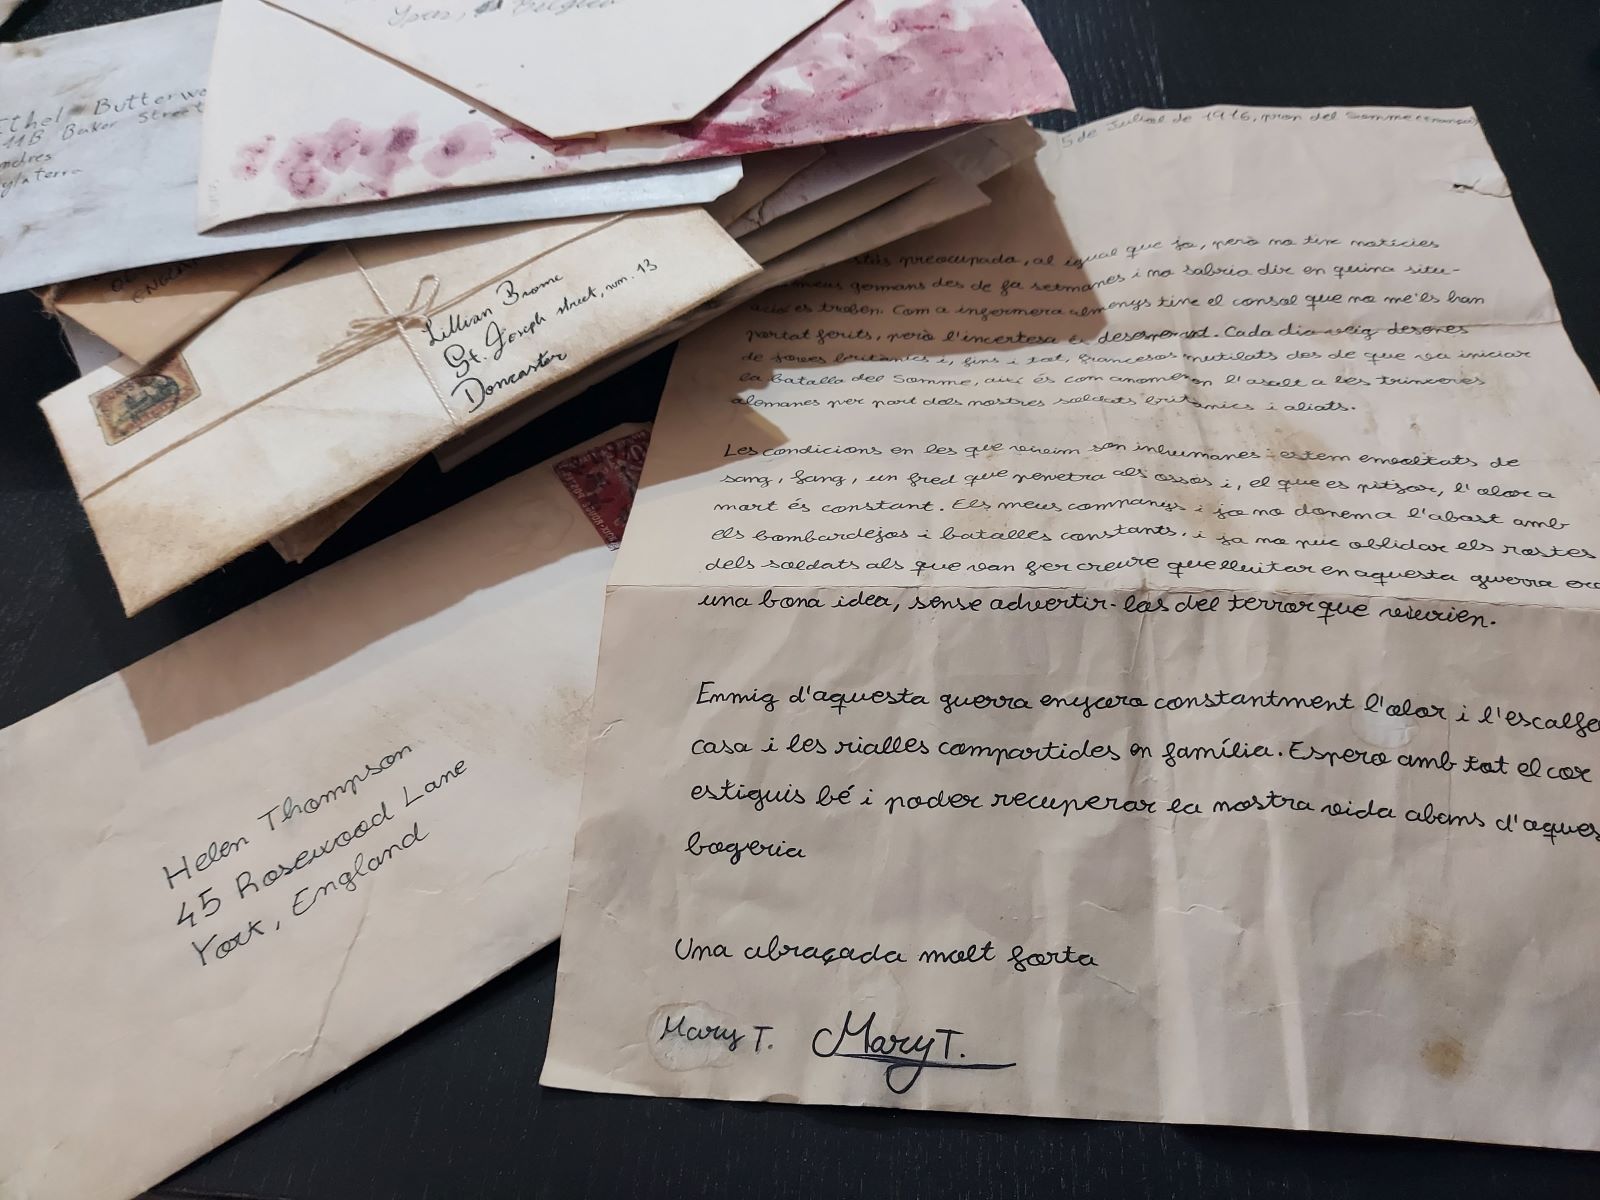 Ypres, Belgium
Ethel Butterwo
11B Baker Street
ondres
nglaterra
ENGLAN
Lillian Brome
St. Joseph street, num. 13
Doncaster
Helen Thompson
45 Rosewood Lane
York, England
5 de Juliol de 1916, prop del Somme (França)
estàs preocupada, al igual que jo, però no tinc notícies
meus germans des de fa setmanes i no sabria dir en quina situ-
ació es troben. Com a infermera almenys tinc el consol que no me'ls han
portat ferits, però l'incertesa és desesperant. Cada dia veig desenes
de joves britànics i, fins i tot, francesos mutilats des de que va iniciar
la batalla del Somme, així és com anomenen l'asalt a les trinxeres
alemanes per part dels nostres soldats britànics i aliats.
Les condicions en les que vivim son inhumanes: estem envoltats de
sang, fang, un fred que penetra als ossos i, el que es pitjor, l'olor a
mort és constant. Els meus companys i jo no donem a l'abast amb
els bombardejos i batalles constants, i ja no puc oblidar els rostes
dels soldats als que van fer creure que lluitar en aquesta guerra era
una bona idea, sense advertir-los del terror que viurien.
Enmig d'aquesta guerra enyoro constantment l'olor i l'escalfo
casa i les rialles compartides en família. Espero amb tot el cor
estiguis bé i poder recuperar la nostra vida abans d'aques
bogeria
Una abraçada molt forta
Mary T. Mary T.